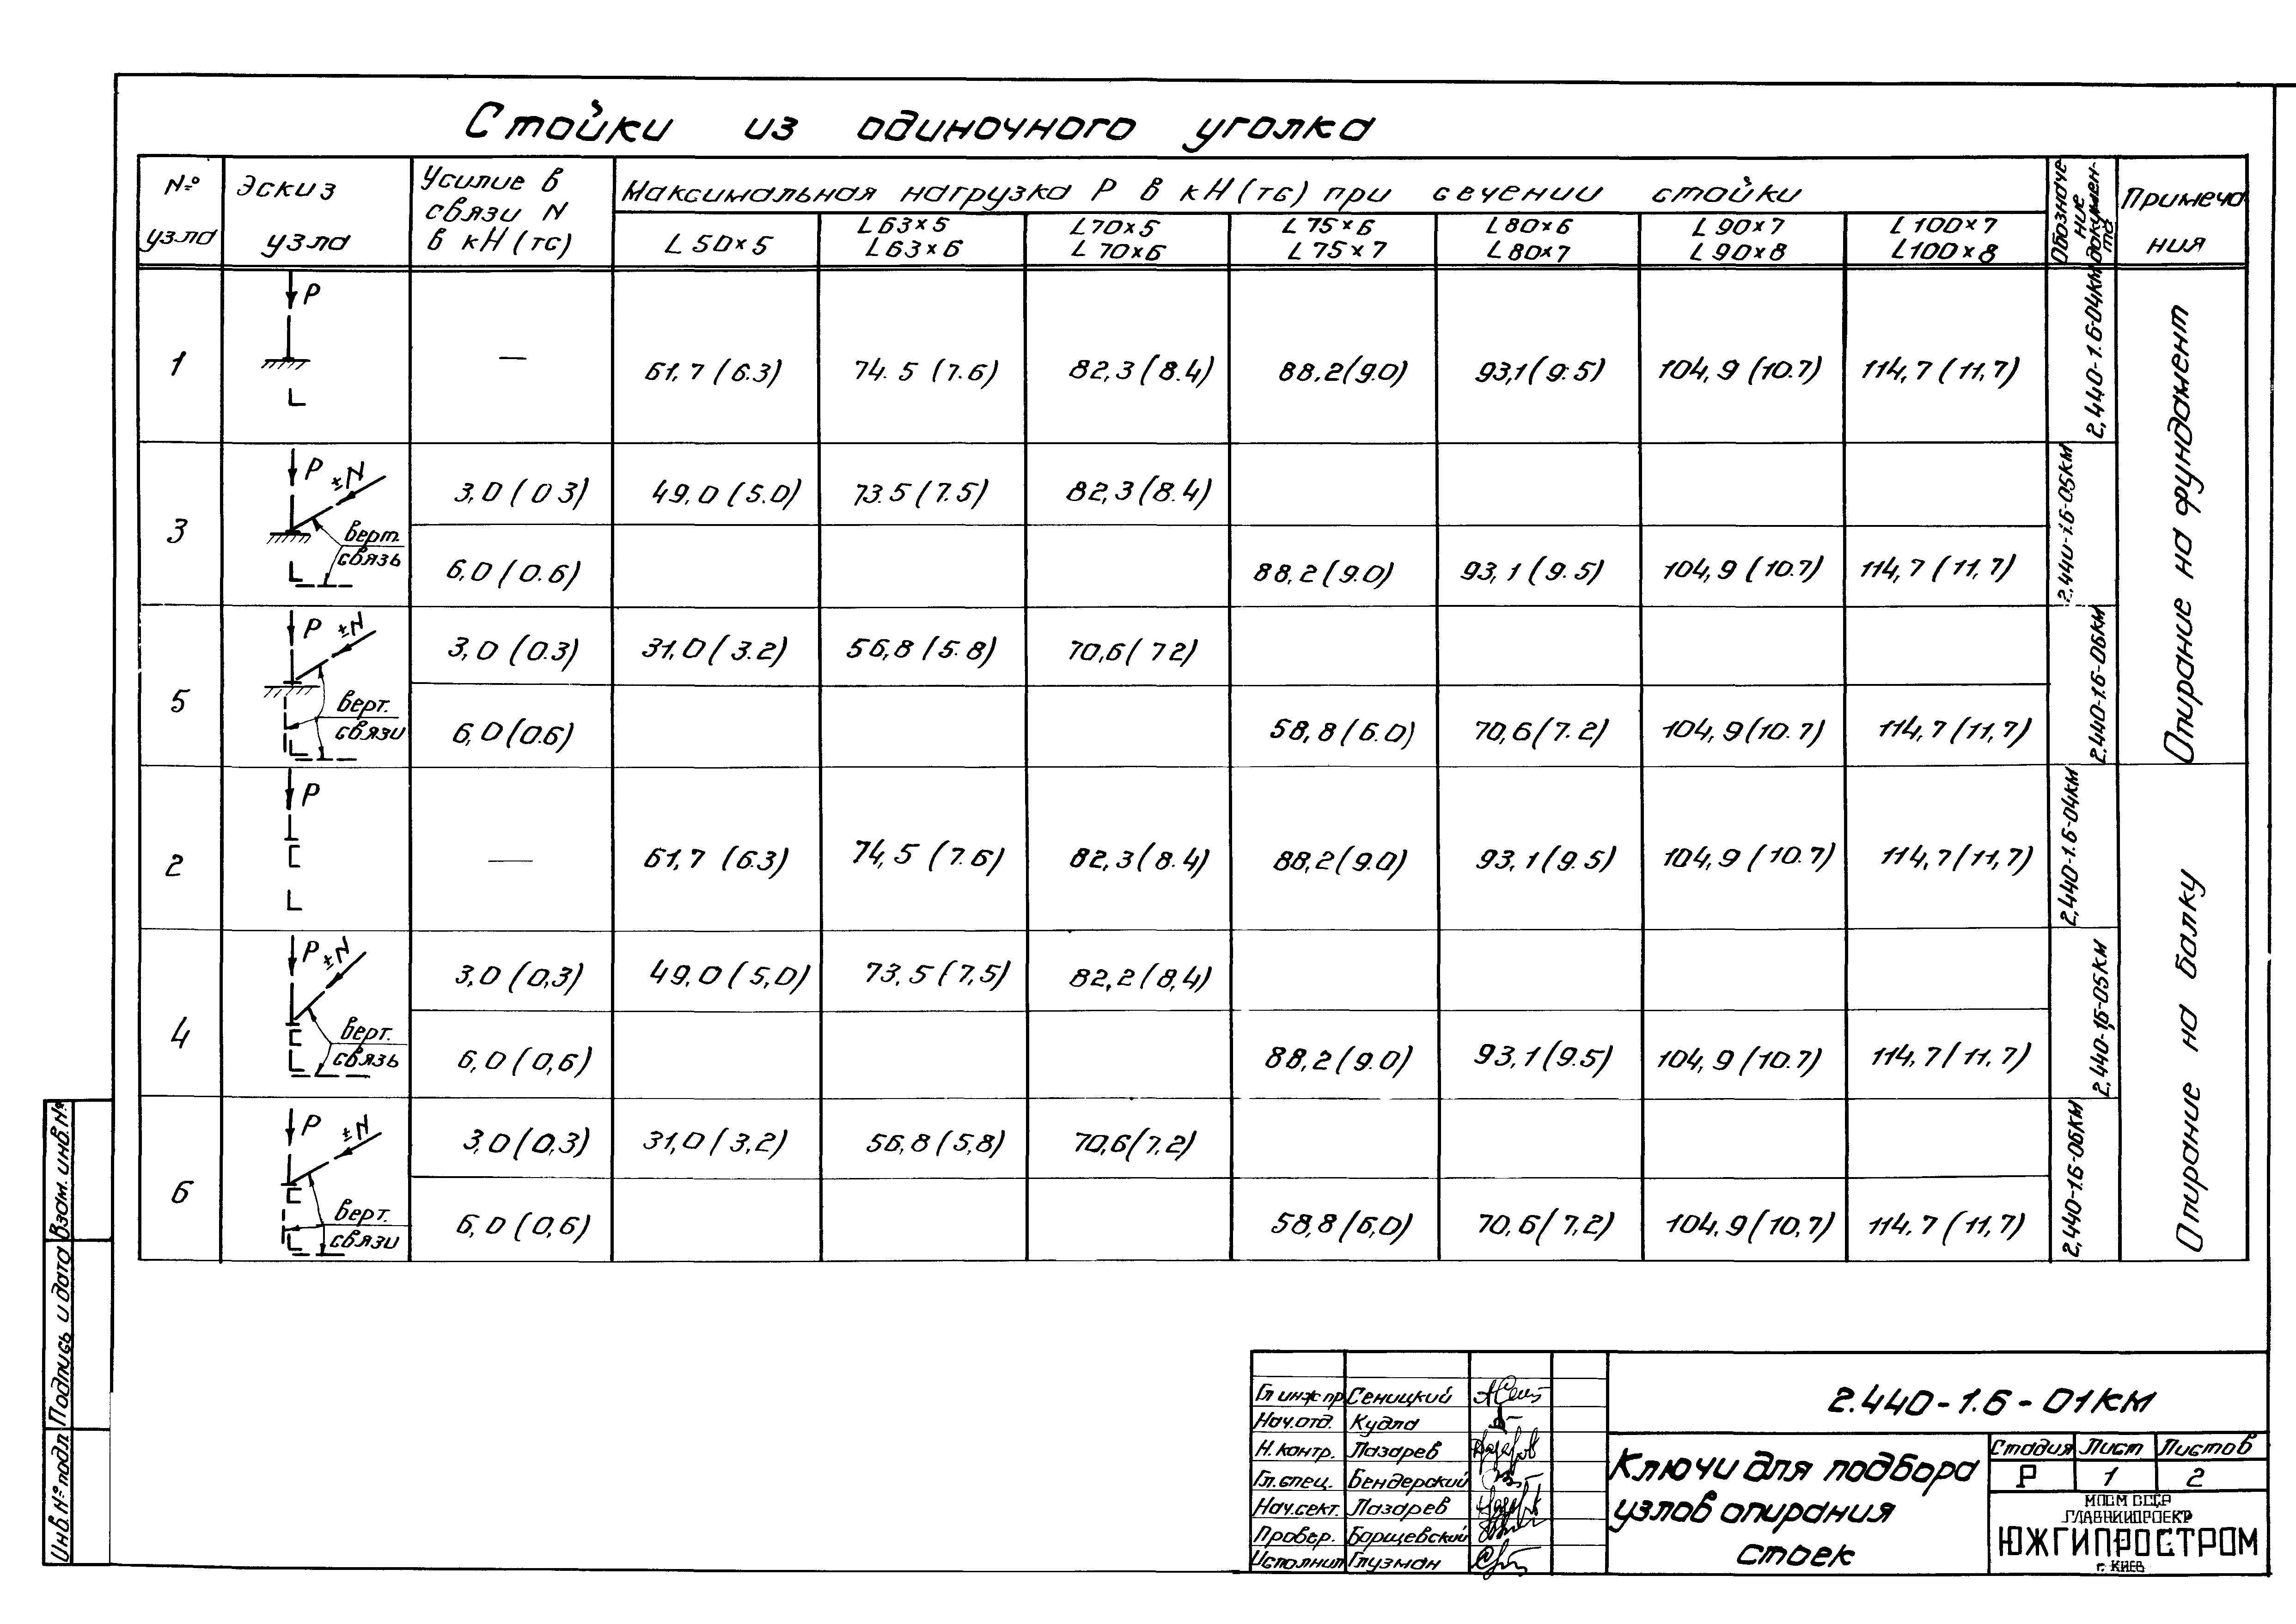 Стойки из одиночного уголка
№ узла
Эскиз узла
Усилие в связи N в кН (тс)
Максимальная нагрузка Р в кН (тс) при сечении стойки
Обозначе ние докумен- та
Примеча ния
L 50×5
L 63×5
L 63×6
L 70×5
L 70×6
L 75×6
L 75×7
L 80×6
L 80×7
L 90×7
L 90×8
L 100×7
L 100×8
1
Р
—
61,7 (6.3) 74.5 (7.6) 82,3 (8.4) 88,2 (9.0) 93,1 (9.5) 104,9 (10.7) 114,7 (11,7)
2,440-1.6-04КМ
Опирание на фундамент
3
Р ±N
верт.
связь
3,0 (0 3) 49,0 (5.0) 73.5 (7.5) 82,3 (8.4)
6,0 (0.6) 88,2 (9.0) 93,1 (9.5) 104,9 (10.7) 114,7 (11,7)
2,440-1.6-05КМ
5
Р ±N
верт.
связи
3,0 (0.3) 31,0 (3.2) 56,8 (5.8) 70,6 (7 2)
6,0 (0.6) 58,8 (6.0) 70,6 (7.2) 104,9 (10.7) 114,7 (11,7)
2.440-1.6-06КМ
2
Р
—
61,7 (6.3) 74,5 (7.6) 82,3 (8.4) 88,2 (9.0) 93,1 (9.5) 104,9 (10.7) 114,7 (11,7)
2,440-1.6-04КМ
Опирание на балку
4
Р ±N
верт.
связь
3,0 (0,3) 49,0 (5,0) 73,5 (7,5) 82,2 (8,4)
6,0 (0,6) 88,2 (9.0) 93,1 (9.5) 104,9 (10.7) 114,7 (11,7)
2,440-1,6-05КМ
6
Р ±N
верт.
связи
3,0 (0,3) 31,0 (3,2) 56,8 (5,8) 70,6 (7,2)
6,0 (0,6) 58,8 (6,0) 70,6 (7,2) 104,9 (10,7) 114,7 (11,7)
2,440-1.6-06КМ
Взам. инв. №
Подпись и дата
Инв. № подл.
Гл инж пр Сеницкий
Нач.отд. Кудла
Н.контр. Лазарев
Гл.спец. Бендерский
Нач.сект. Лазарев
Провер. Борщевский
Исполнил Глузман
2.440-1.6-01КМ
Ключи для подбора
узлов опирания
стоек
Стадия Лист Листов
Р 1 2
МПСМ СССР
ГЛАВНИИПРОЕКТ
ЮЖГИПРОСТРОМ
г. КИЕВ